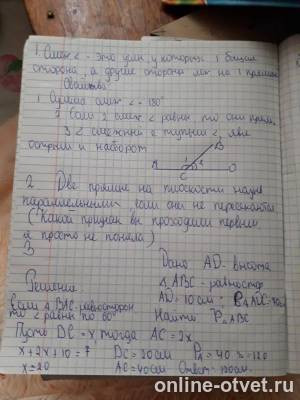 1. Смеж < - это углы, у которых 1 общая
сторона, а другие стороны леж на 1 прямой
Свойства
1 Сумма смеж < = 180°
2 Если 2 смеж < равны то они прям.
3 < смежный с тупым <
острый и наоборот
B
A C D
2 Две прямые на плоскости назыв
параллельными если они не пересекаются
(какой признак вы проходили первым
я просто не поняла)
3
Дано AD - высота
△ABC - равностор
AD = 10 см;
Решение
Найти P△ABC
Если △BAC - равносторон
то < равны по 60°
Пусть DC = x тогда AC = 2x
x + 2x + 10 = ?
DC = 20 см
x = 20
AC = 40 см
Ответ: 120 см.
online-otvet.ru